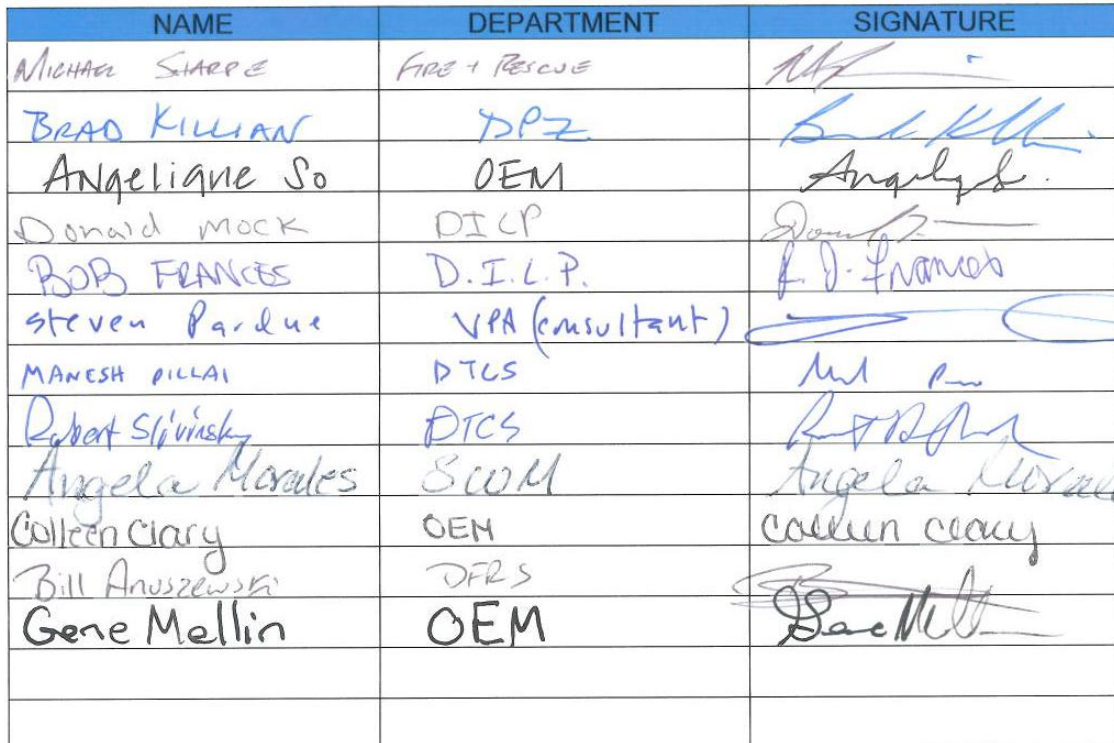 NAME DEPARTMENT SIGNATURE
MICHAEL SHARPE FIRE + RESCUE
BRAD KILLIAN DPZ
Angelique So OEM
Donald Mock DILP
BOB FRANCES D.I.L.P. R. J. Frances
Steven Pardue VPA (consultant)
MANESH PILLAI DTCS
Robert Slivinsky DTCS
Angela Morales SWM Angela Morales
Colleen Clary OEM Colleen Clary
Bill Anuszewski DFRS
Gene Mellin OEM Gene